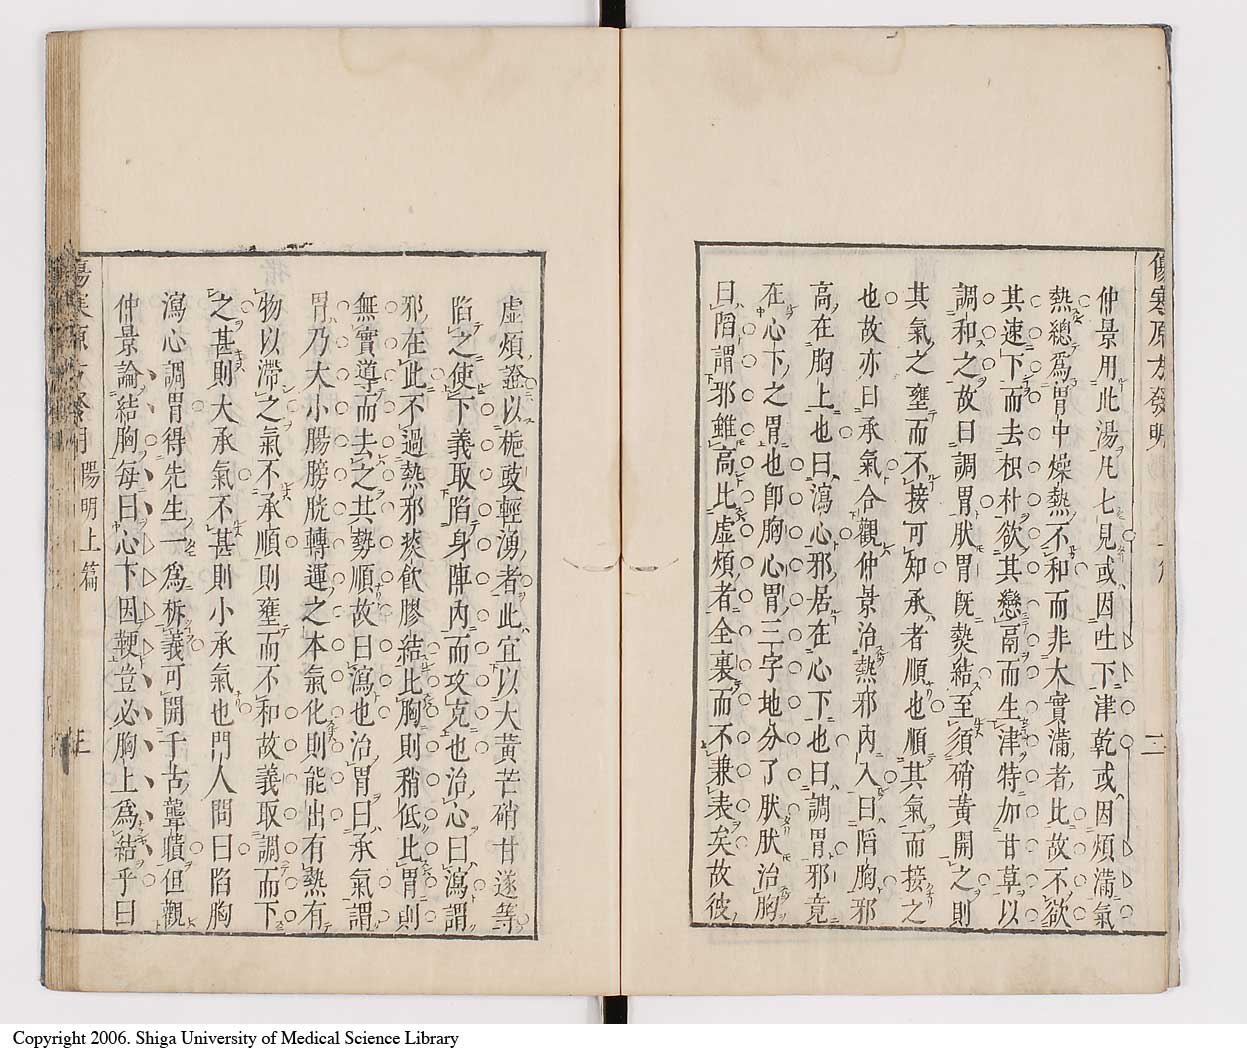 傷寒原方發明
二
仲景用此湯凡七見或因吐下津乾或因煩滿氣
熱總爲胃中燥熱不和而非大實滿者比故不欲
其速下而去枳朴欲其戀膈而生津特加甘草以
調和之故曰調胃肰胃旣𤍠結至須硝黃開之則
其氣之壅而不接可知承者順也順其氣而接之
也故亦曰承氣合觀仲景治熱邪內入曰陷胸邪
高在胸上也曰瀉心邪居在心下也曰調胃邪竟
在心下之胃也卽胸心胃三字地分了肰肰治胸
曰陷謂邪雖高比虛煩者全裏而不兼表矣故彼
虛煩證以梔豉輕湧者此宜以大黃芒硝甘遂等
陷之使下義取陷身陣內而攻克也治心曰瀉謂
邪在此不過熱邪痰飮膠結比胸則稍低比胃則
無實導而去之其勢順故曰瀉也治胃曰承氣謂
胃乃大小腸膀胱轉運之本氣化則能出有熱有
物以滯之氣不承順則壅而不和故義取調而下
之甚則大承氣不甚則小承氣也門人問曰陷胸
瀉心調胃得先生一爲柝義可開千古聾聵但觀
仲景論結胸每曰心下因鞕豈必胸上爲結乎曰
陽明上篇